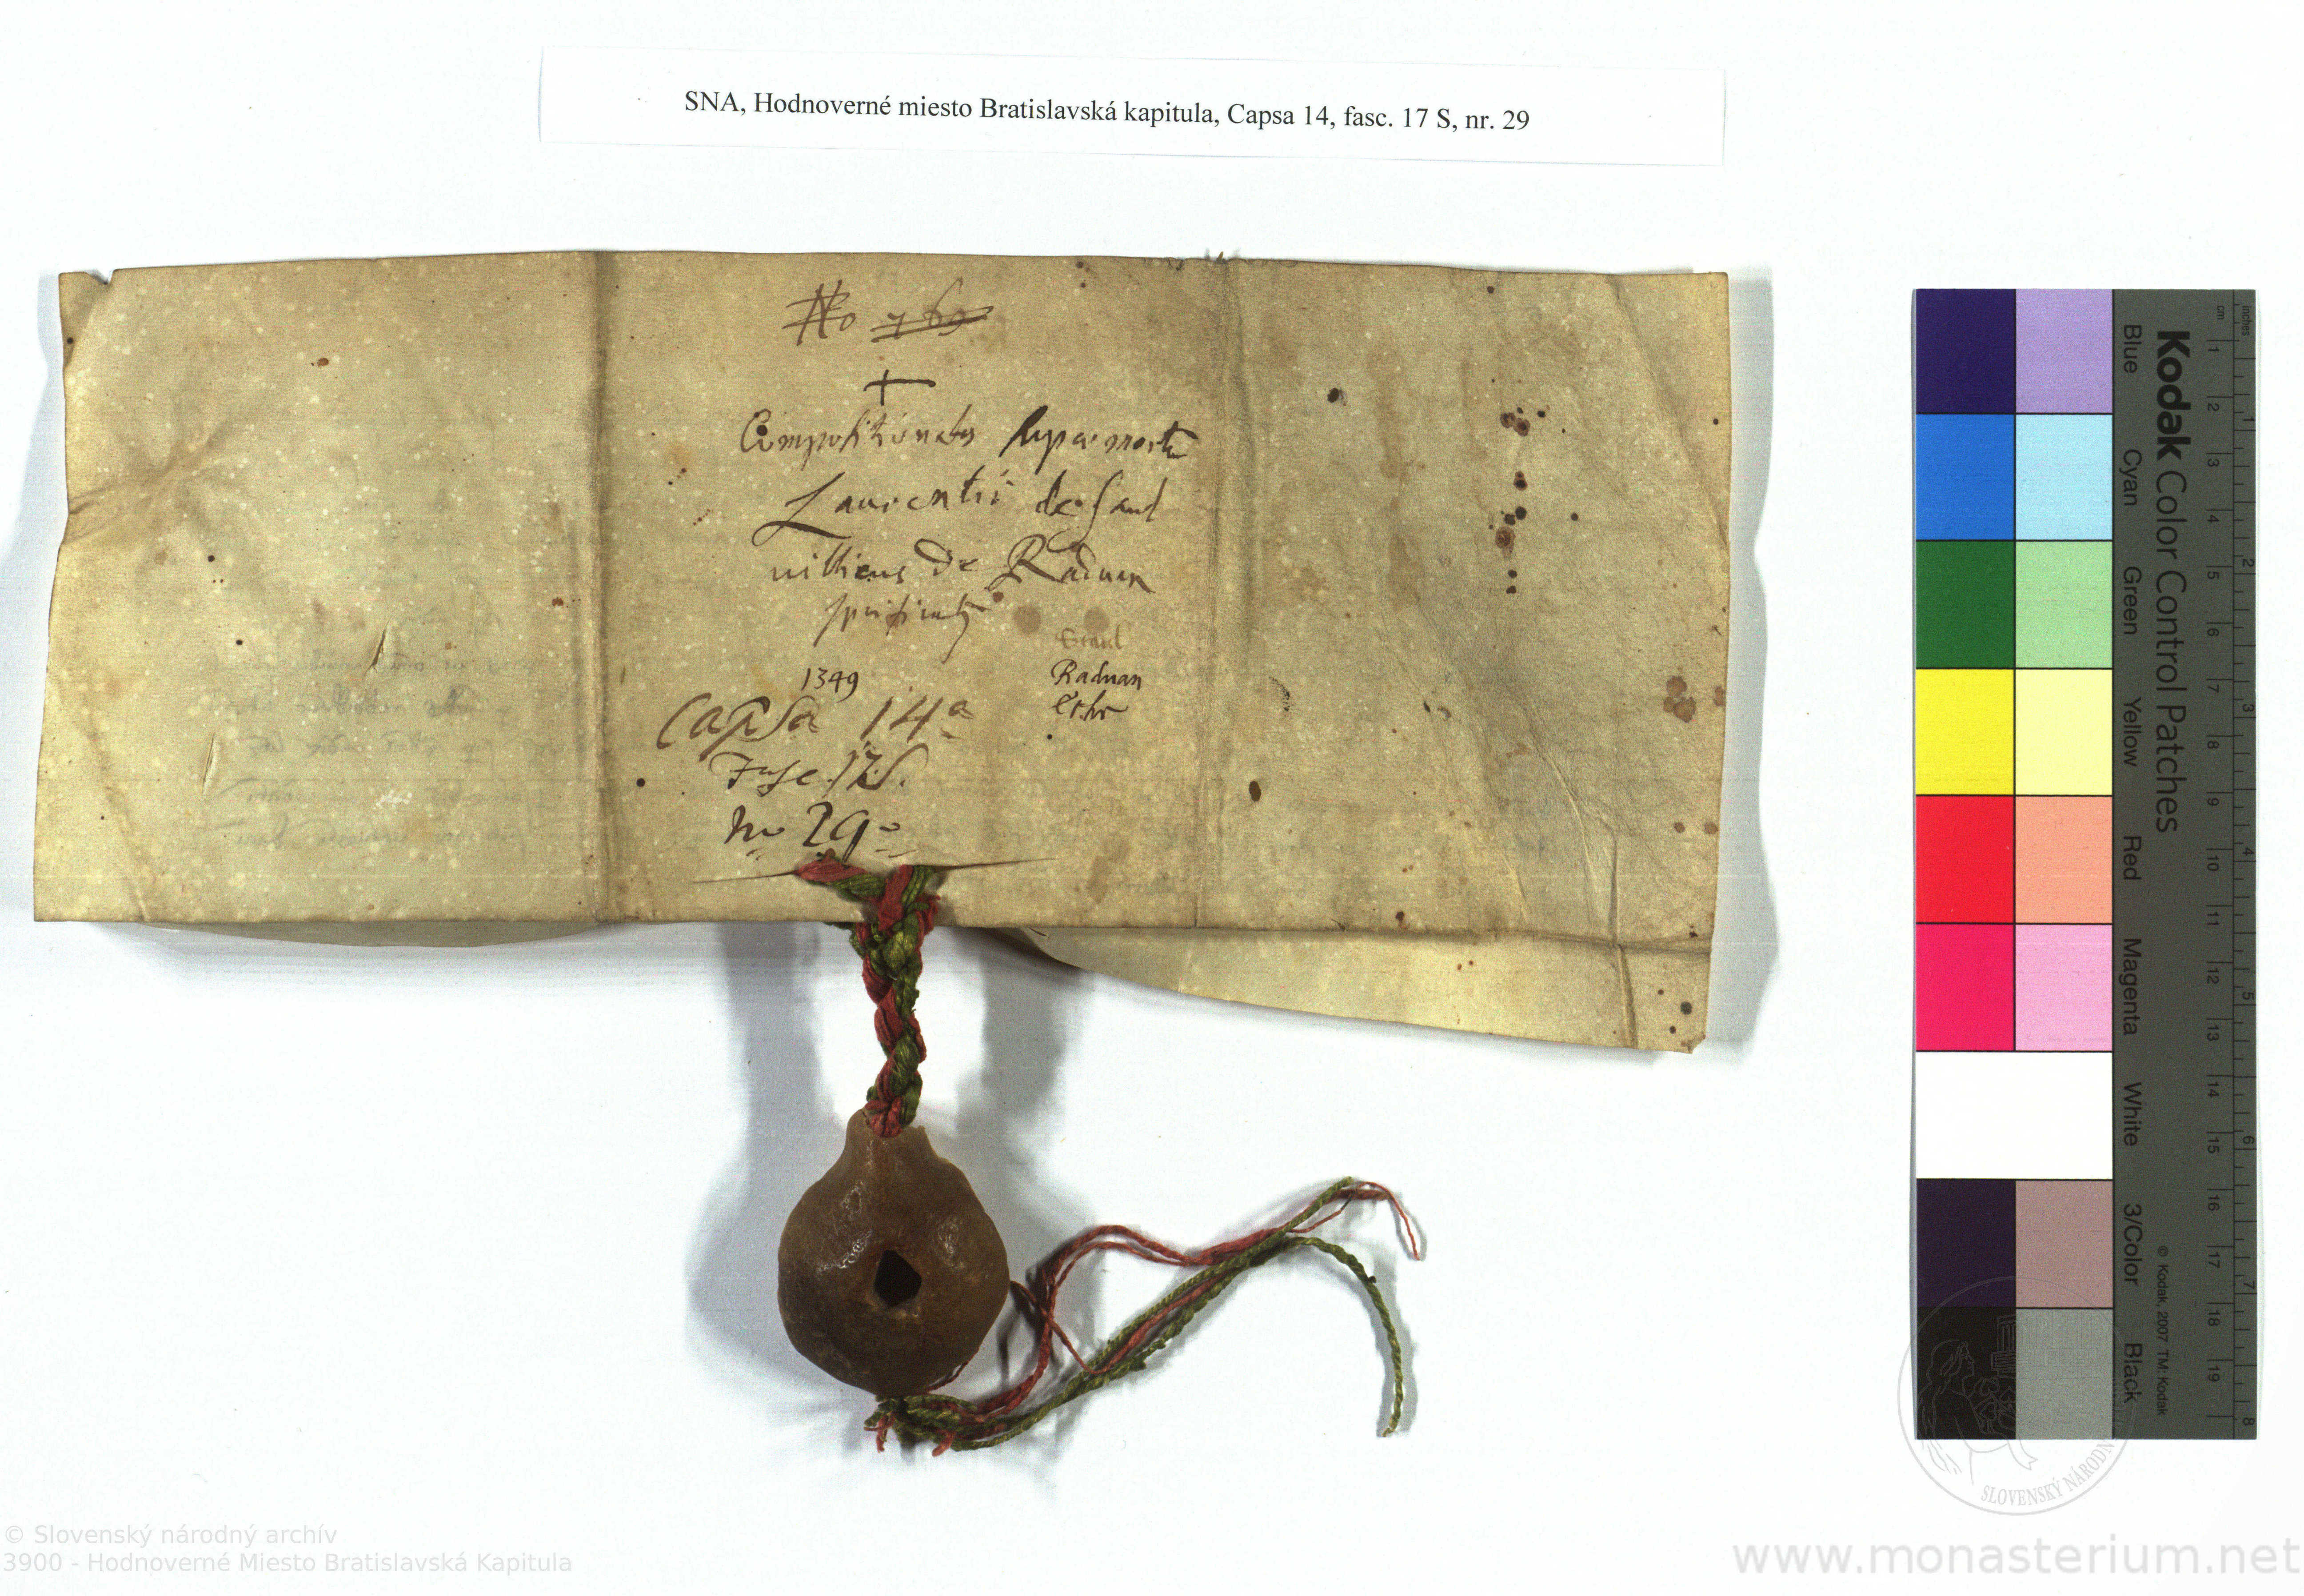 SNA, Hodnoverné miesto Bratislavská kapitula, Capsa 14, fasc. 17 S, nr. 29
No 769
+
Compositionales super morte
Laurentii de Saul
villicus de Raduan
1349
Raduan
Capsa 14a
Fasc. 17 S.
No 29
Kodak Color Control Patches
Blue Cyan Green Yellow Red Magenta White 3/Color Black
© Kodak, 2007 TM: Kodak
cm 1 2 3 4 5 6 7 8 9 10 11 12 13 14 15 16 17 18 19
inches 1 2 3 4 5 6 7 8
SLOVENSKÝ NÁRODN
© Slovenský národný archív
3900 - Hodnoverné Miesto Bratislavská Kapitula
www.monasterium.net